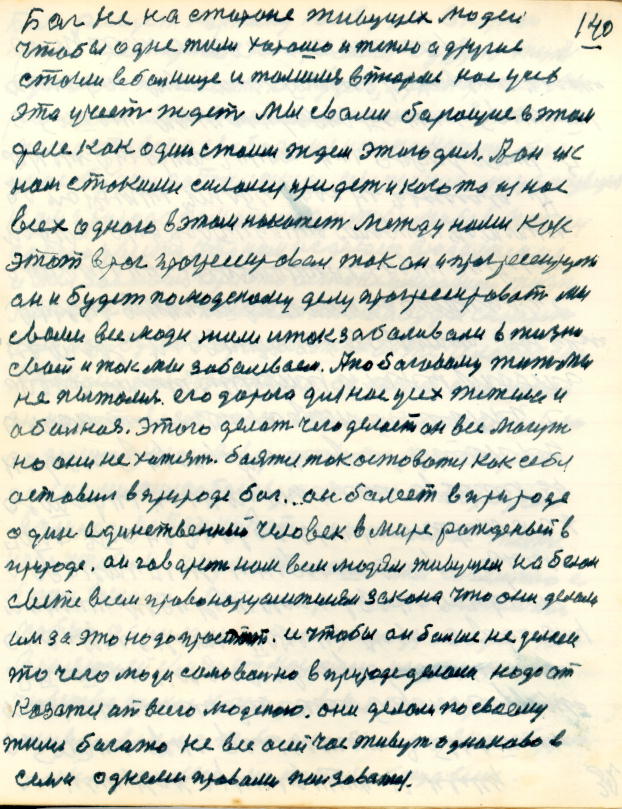 140
Бог не на стороне живущех людей
чтобы одне жили хорошо и тепло а другие
стогли в болнице и томились в тюрме нас усех
эта участ ждет мы свами борющие в этом
деле как один стоим ждем этого дня. А он к
нам стокими силами придет и когото из нас
всех одного в этом накожет между нами как
этот враг прогрессировал так он и прогрессирует
он и будет по людскому делу прогрессироват мы
свами все люди жили и так заболивали в жизни
своей и так мы заболеваем. А по боговому жит мы
не пыталис. его дорога для нас усех тяжела и
аболная. Этого делат чего делает он все могут
но они не хотят. боятся так остоватся как себя
оставил в природе бог. он болеет в природе
один единственный человек в мире рожденый в
природе. он говарит нам всем людям живущем на белом
свете всем провонарушителям закона что они делали
им за это надо простит. и чтобы он болше не делал
это чего люди самоволно в природе делали надо от
казатся от всего людского. они делали по своему
жили богато не все они час живут однаково в
семи однеми правами ползоватся.